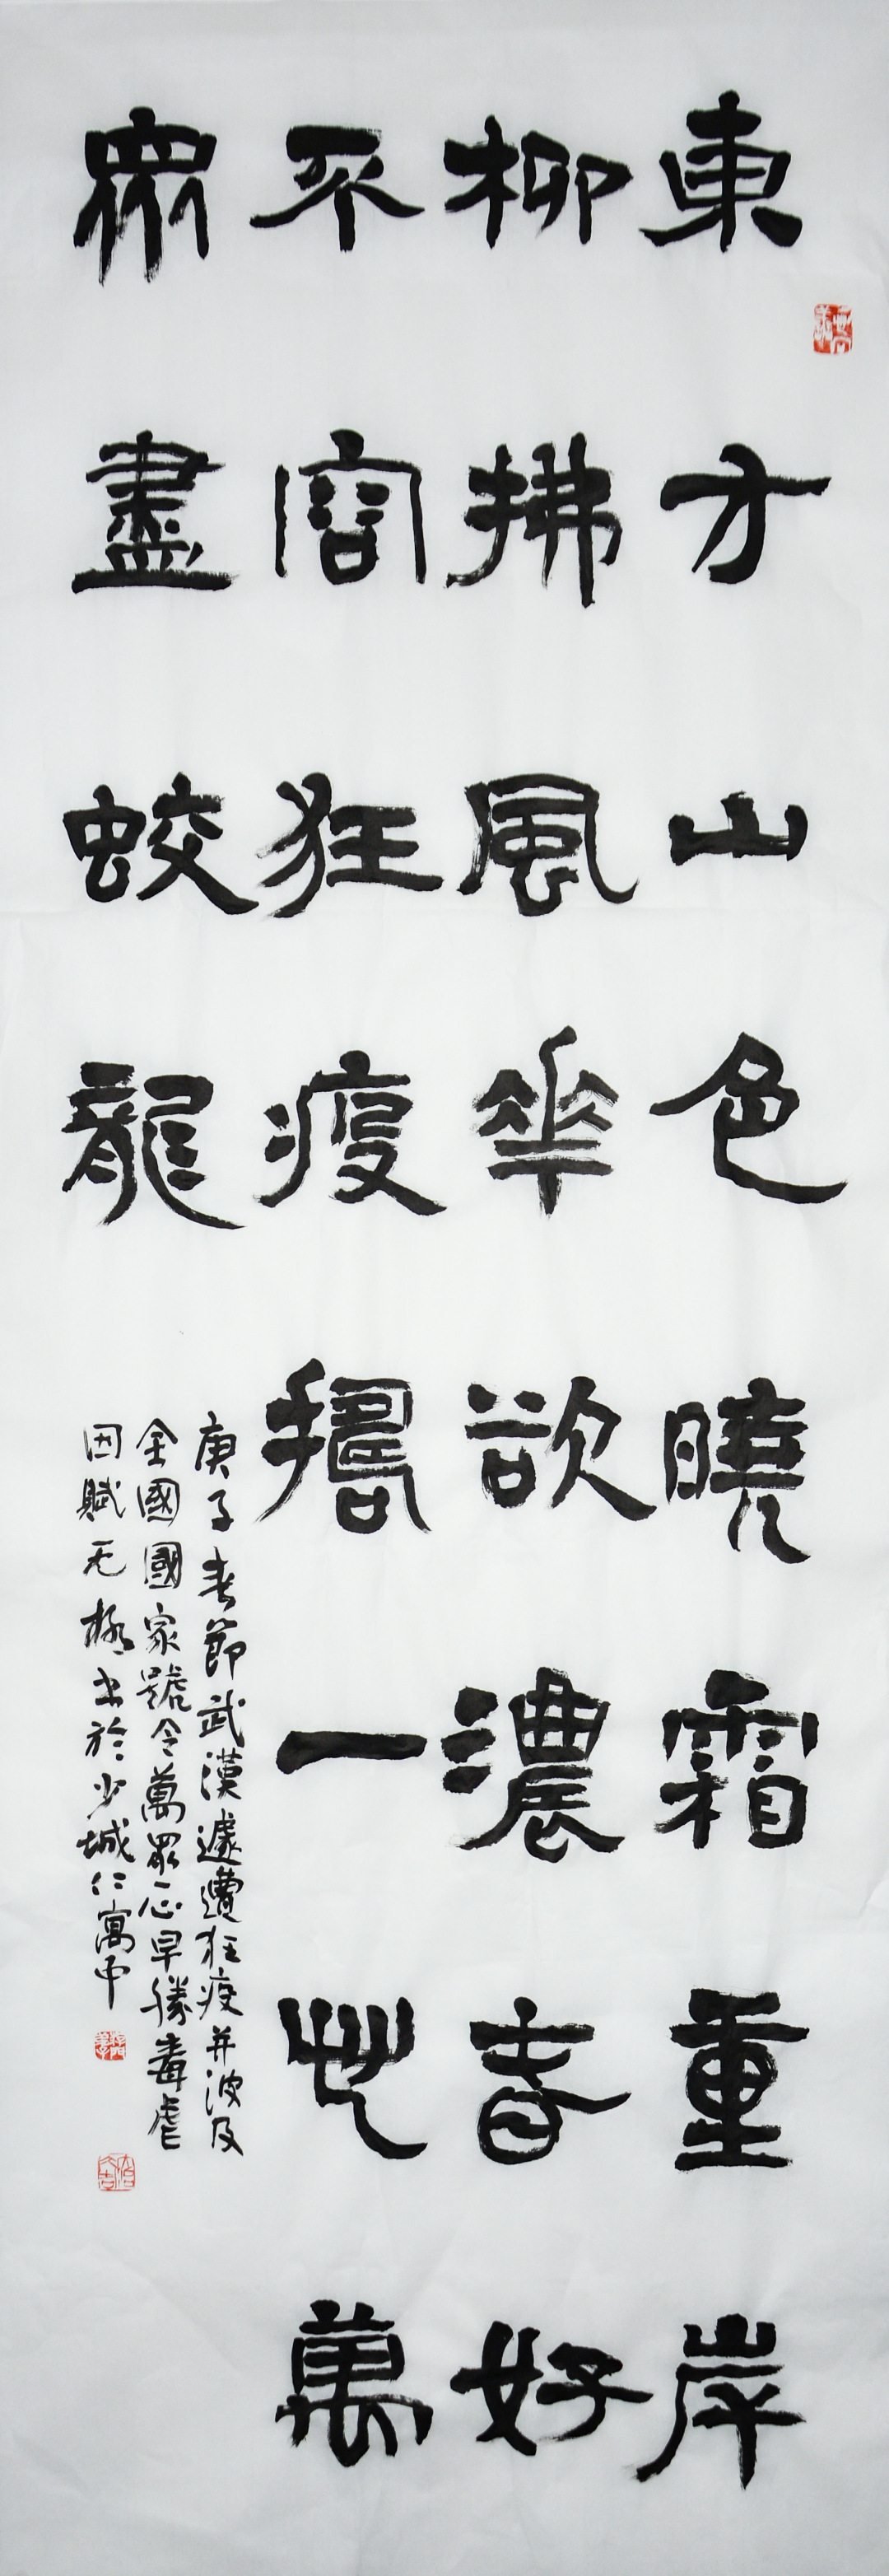 東方山色曉霜重岸
柳拂風華欲濃春好
不容狂疫擾一地萬
眾盡蛟龍
庚子春節武漢遽遭狂疫并波及
全國國家號令萬眾一心早勝毒虐
因賦无極書於少城仁寓中